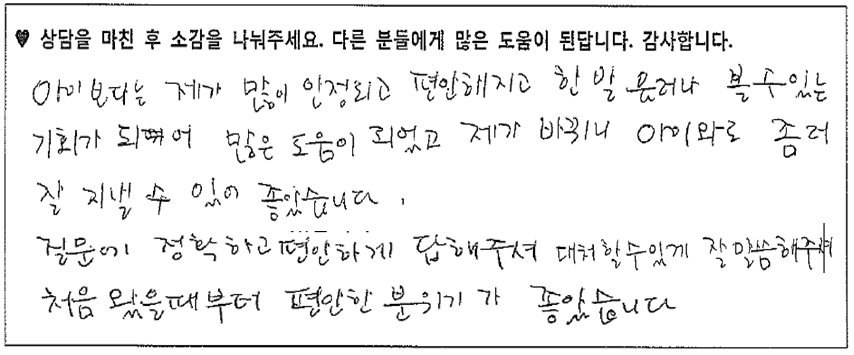 ♥ 상담을 마친 후 소감을 나눠주세요. 다른 분들에게 많은 도움이 된답니다. 감사합니다.
아이보다는 제가 많이 안정되고 편안해지고 한 발 물러나 볼 수 있는
기회가 되어 많은 도움이 되었고 제가 바뀌니 아이와도 좀 더
잘 지낼 수 있어 좋았습니다.
질문에 정확하고 편안하게 답해주셔 대처할 수 있게 잘 말씀해주셔
처음 왔을때부터 편안한 분위기가 좋았습니다